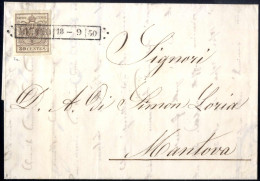 18 - 9 50
30 CENTES
Signori
D. A. di Simon Loria
Mantova